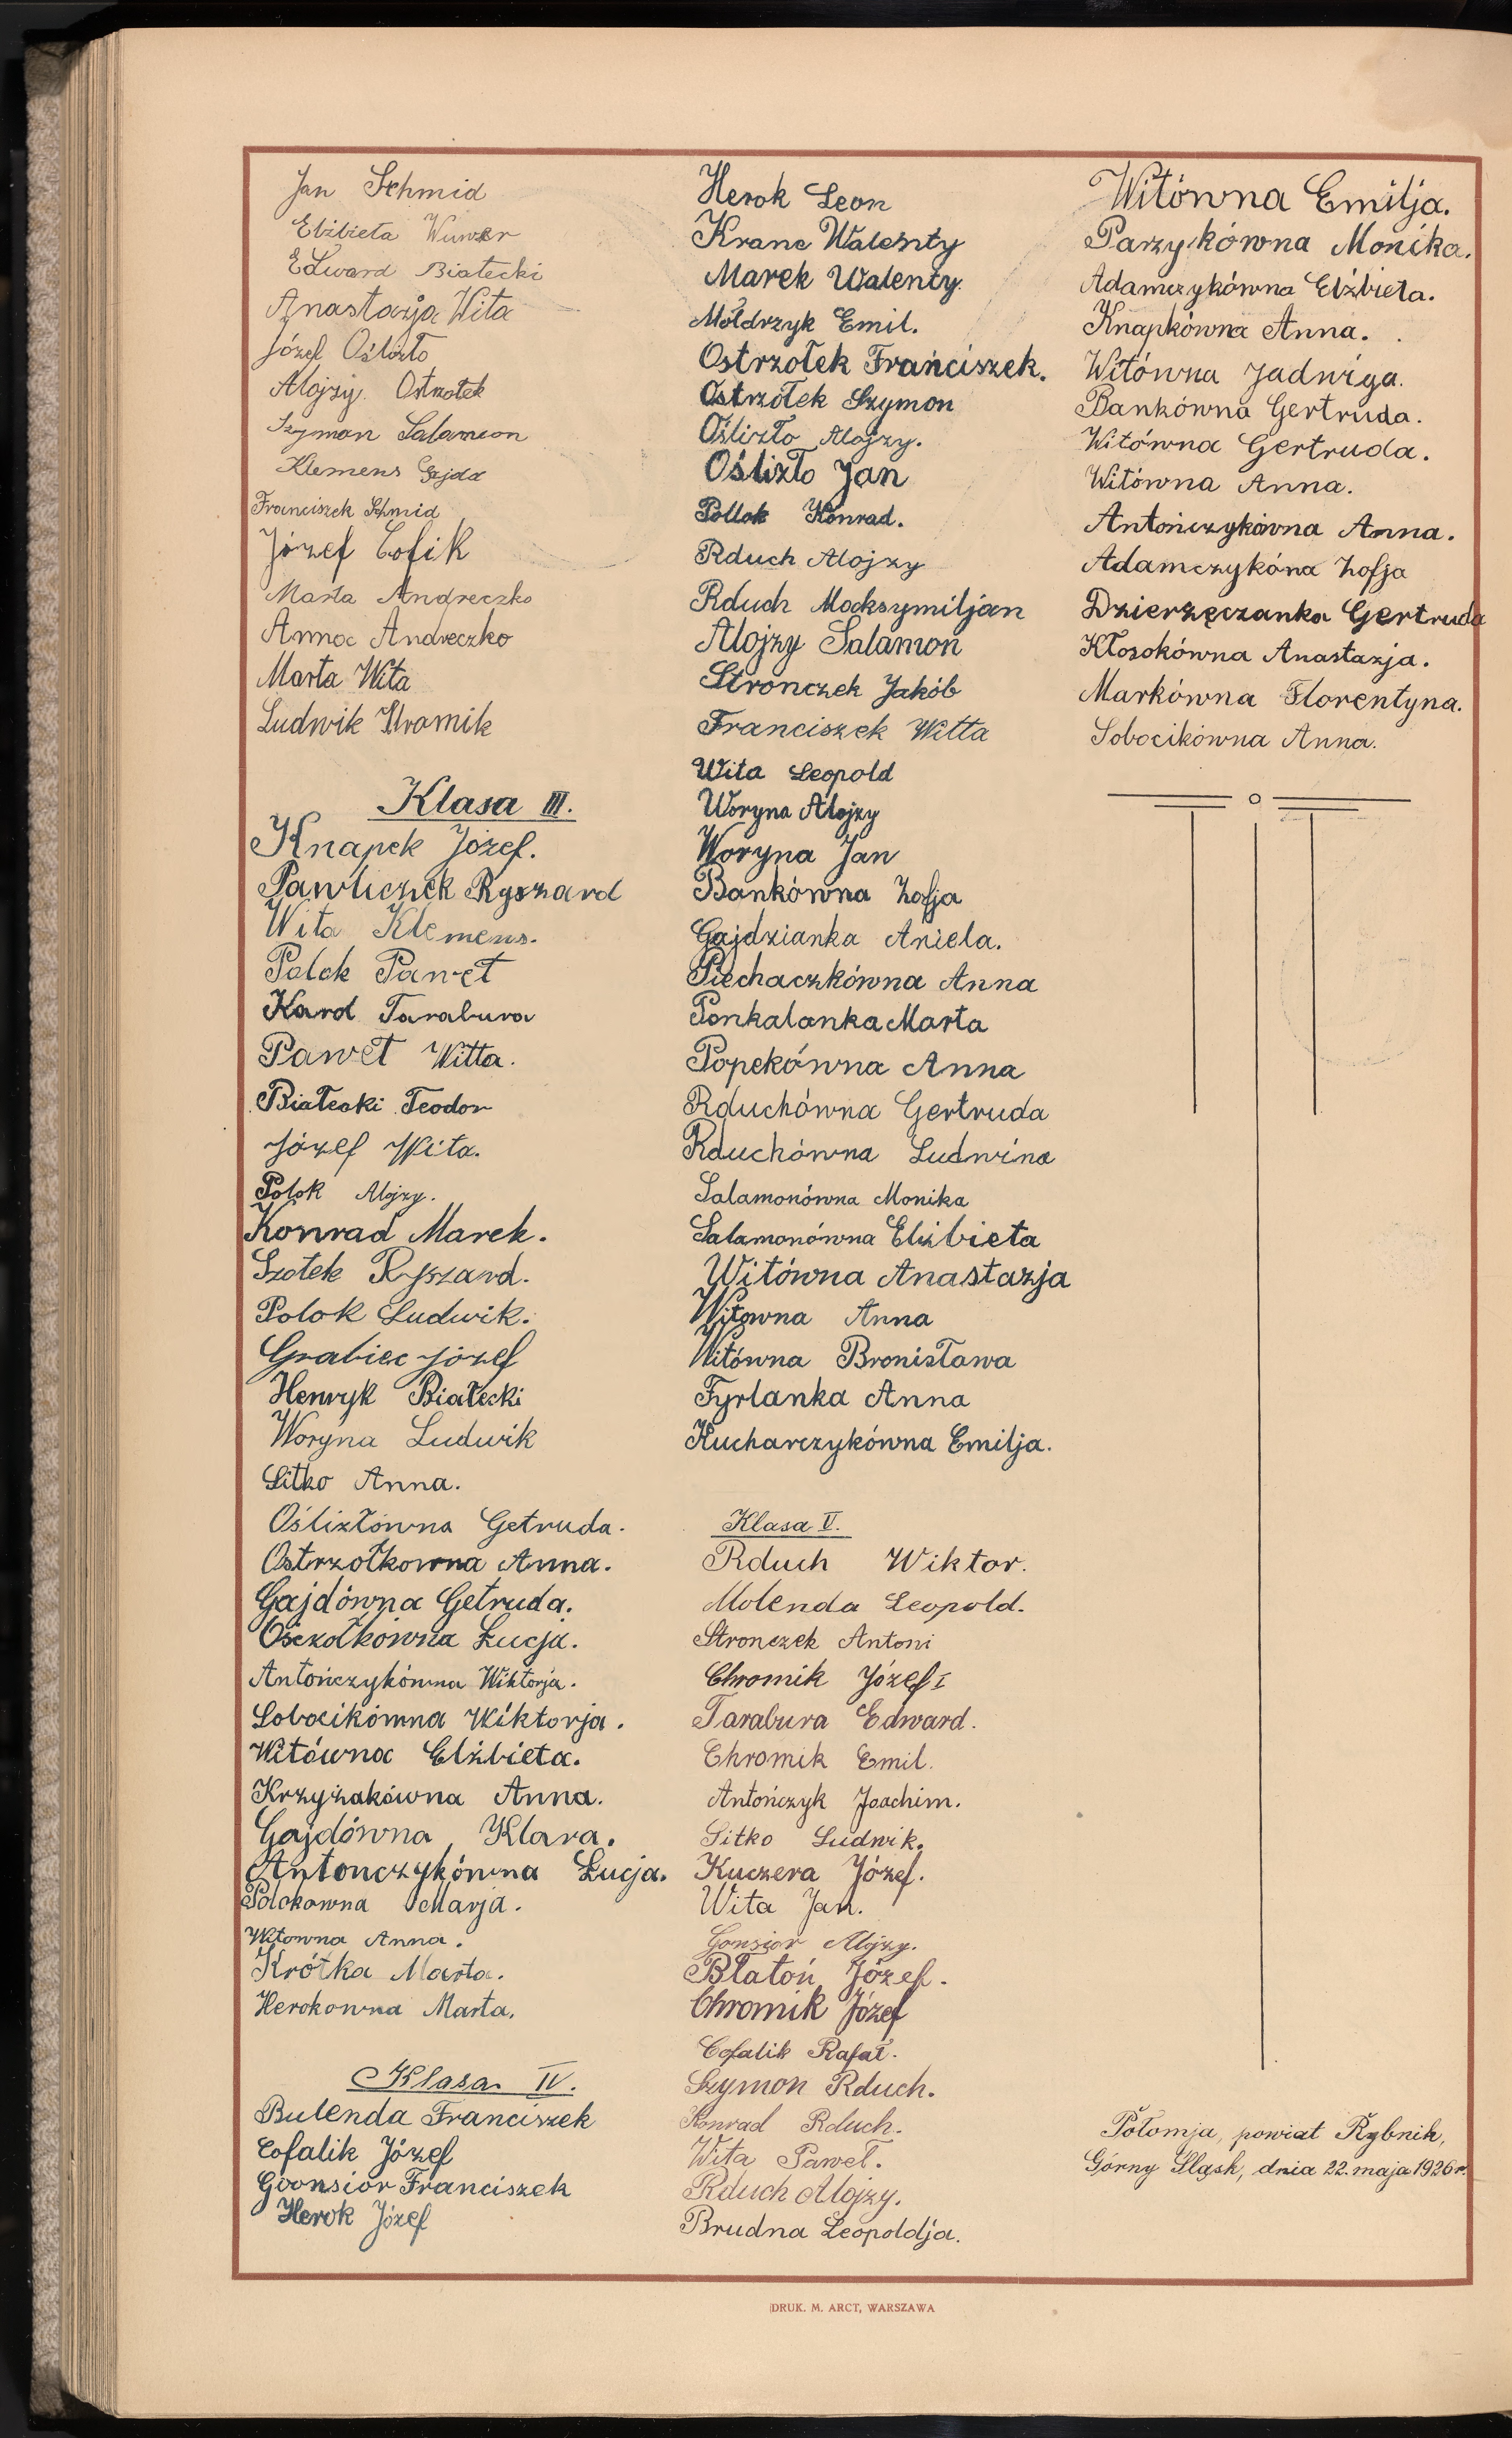 Jan Schmid
Elżbieta Wuwer
Edward Białecki
Anastazja Wita
Józef Oślizło
Alojzy. Ostrzołek
Szymon Salamon
Klemens Gajda
Franciszek Schmid
Józef Cofik
Marta Andreczko
Anna Andreczko
Marta Wita
Ludwik Kromik
Klasa III.
Knapek Józef.
Pawliczek Ryszard
Wita Klemens.
Polok Paweł
Karol Tarabura
Paweł Witta.
Białecki Teodor
Józef Wita.
Polok Alojzy.
Konrad Marek.
Szołek Ryszard.
Polok Ludwik.
Grabiec Józef
Henryk Białecki
Woryna Ludwik
Sitko Anna.
Oślizłowna Getruda.
Ostrzołkowna Anna.
Gajdówna Getruda.
Osczołkówna Łucja.
Antończykówna Wiktorja.
Sobocikówna Wiktorja.
Witówna Elżbieta.
Krzyżakówna Anna.
Gajdówna Klara.
Antonczykówna Łucja.
Polokowna Marja.
Witowna Anna.
Krótka Marta.
Herokowna Marta.
Klasa IV.
Bulenda Franciszek
Cofalik Józef
Goonsior Franciszek
Herok Józef
Herok Leon
Kranc Walenty
Marek Walenty.
Mołdrzyk Emil.
Ostrzołek Franciszek.
Ostrzołek Szymon
Oślizło Alojzy.
Oślizło Jan
Pollok Konrad.
Rduch Alojzy
Rduch Maksymiljan
Alojzy Salamon
Stronczek Jakób
Franciszek Witta
Wita Leopold
Woryna Alojzy
Woryna Jan
Bankówna Zofja
Gajdzianka Aniela.
Piechaczkówna Anna
Ponkalanka Marta
Popekówna Anna
Rduchówna Gertruda
Rduchówna Ludwina
Salamonówna Monika
Salamonówna Elżbieta
Witówna Anastazja
Witowna Anna
Witówna Bronisława
Fyrlanka Anna
Kucharczykówna Emilja.
Klasa V.
Rduch Wiktor.
Molenda Leopold.
Stronczek Antoni
Chromik Józef I
Tarabura Edward.
Chromik Emil.
Antończyk Joachim.
Sitko Ludwik.
Kuczera Józef.
Wita Jan.
Gonsior Alojzy.
Błatoń Józef.
Chromik Józef
Cofalik Rafał.
Szymon Rduch.
Konrad Rduch.
Wita Paweł.
Rduch Alojzy.
Brudna Leopoldja.
Witówna Emilja.
Parzykówna Monika.
Adamczykówna Elżbieta.
Knapkówna Anna.
Witówna Jadwiga.
Bankówna Gertruda.
Witówna Gertruda.
Witówna Anna.
Antończykówna Anna.
Adamczykóna Zofja
Dzierżęczanka Gertruda
Kłosokówna Anastazja.
Markówna Florentyna.
Sobocikówna Anna.
Połomja, powiat Rybnik,
Górny Śląsk, dnia 22. maja 1926 r.
DRUK. M. ARCT, WARSZAWA